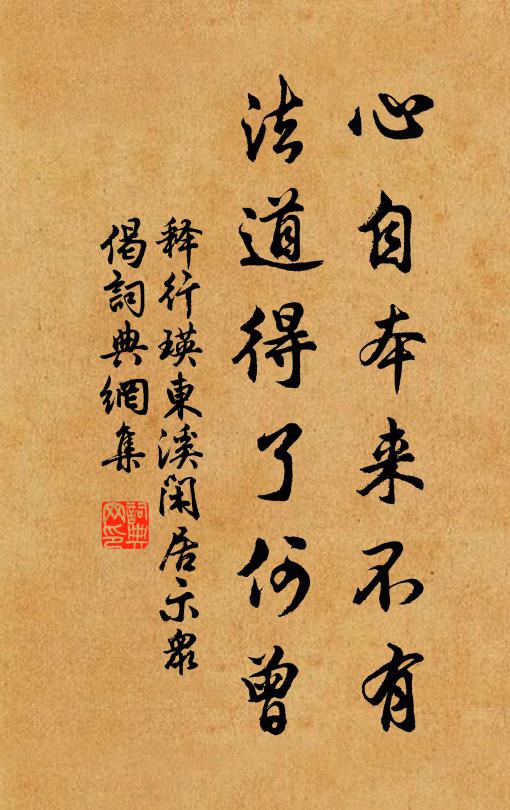 心自本来不有
法道得了何曾
释行瑛東溪闲居示衆
偈詞典網集
詞典网印